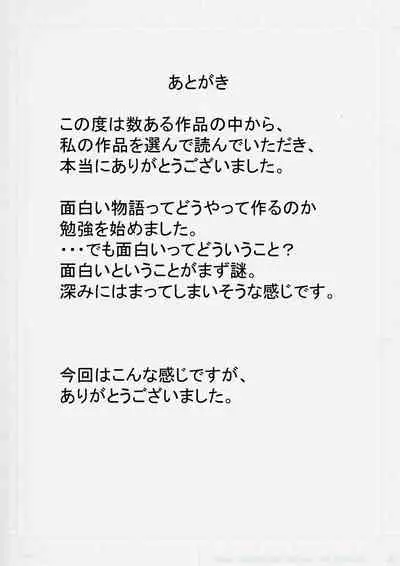 あとがき
この度は数ある作品の中から、
私の作品を選んで読んでいただき、
本当にありがとうございました。
面白い物語ってどうやって作るのか
勉強を始めました。
・・・でも面白いってどういうこと？
面白いということがまず謎。
深みにはまってしまいそうな感じです。
今回はこんな感じですが、
ありがとうございました。